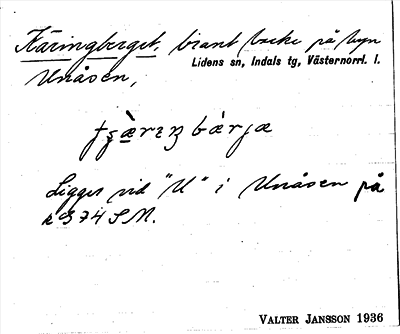 Käringberget, brant backe på byn
Lidens sn, Indals tg, Västernorrl. l.
Unåsen,
Ligger vid "U" i Unåsen på
k 374 SM.
VALTER JANSSON 1936